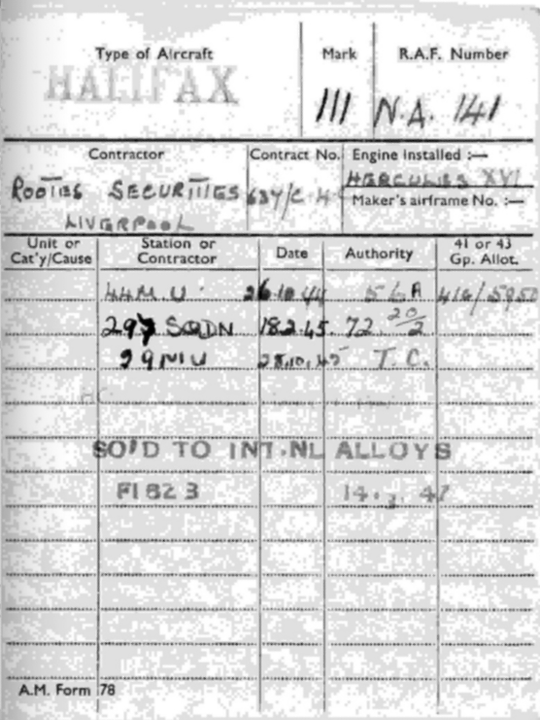 Type of Aircraft Mark R.A.F. Number
HALIFAX 111 N.A. 141
Contractor Contract No. Engine Installed :—
ROOTES SECURITIES 637/C.4 HERCULES XVI
LIVERPOOL Maker's airframe No. :—
Unit or Cat'y/Cause Station or Contractor Date Authority 41 or 43 Gp. Allot.
44 M.U. 26.10.44 41G/5950
297 SQDN 18.2.45. 72. 20/2
29 MU 28.10.45 T.C.
SO'D TO INT.NL ALLOYS
F1823 14.3.47
A.M. Form 78